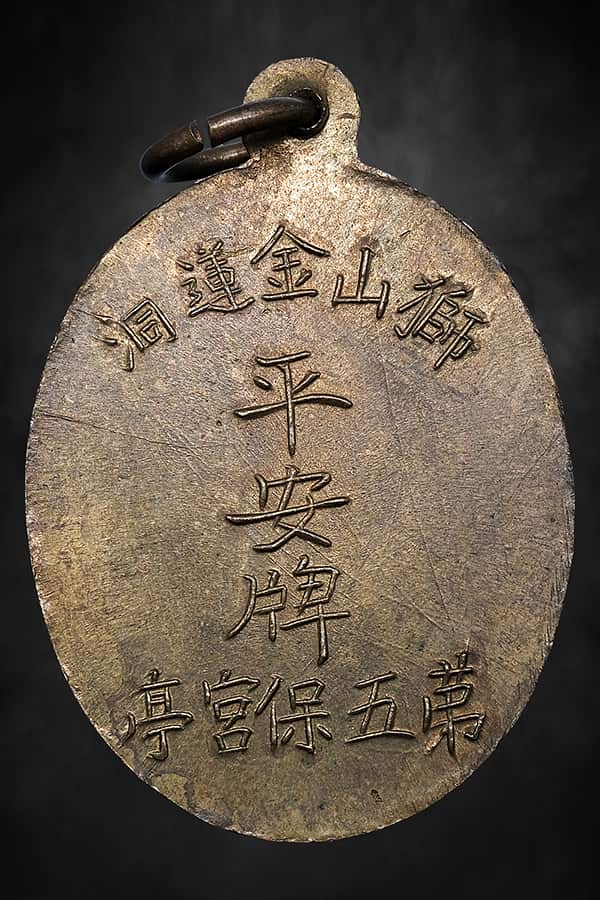 獅山金蓮洞
平安牌
苐五保宮亭